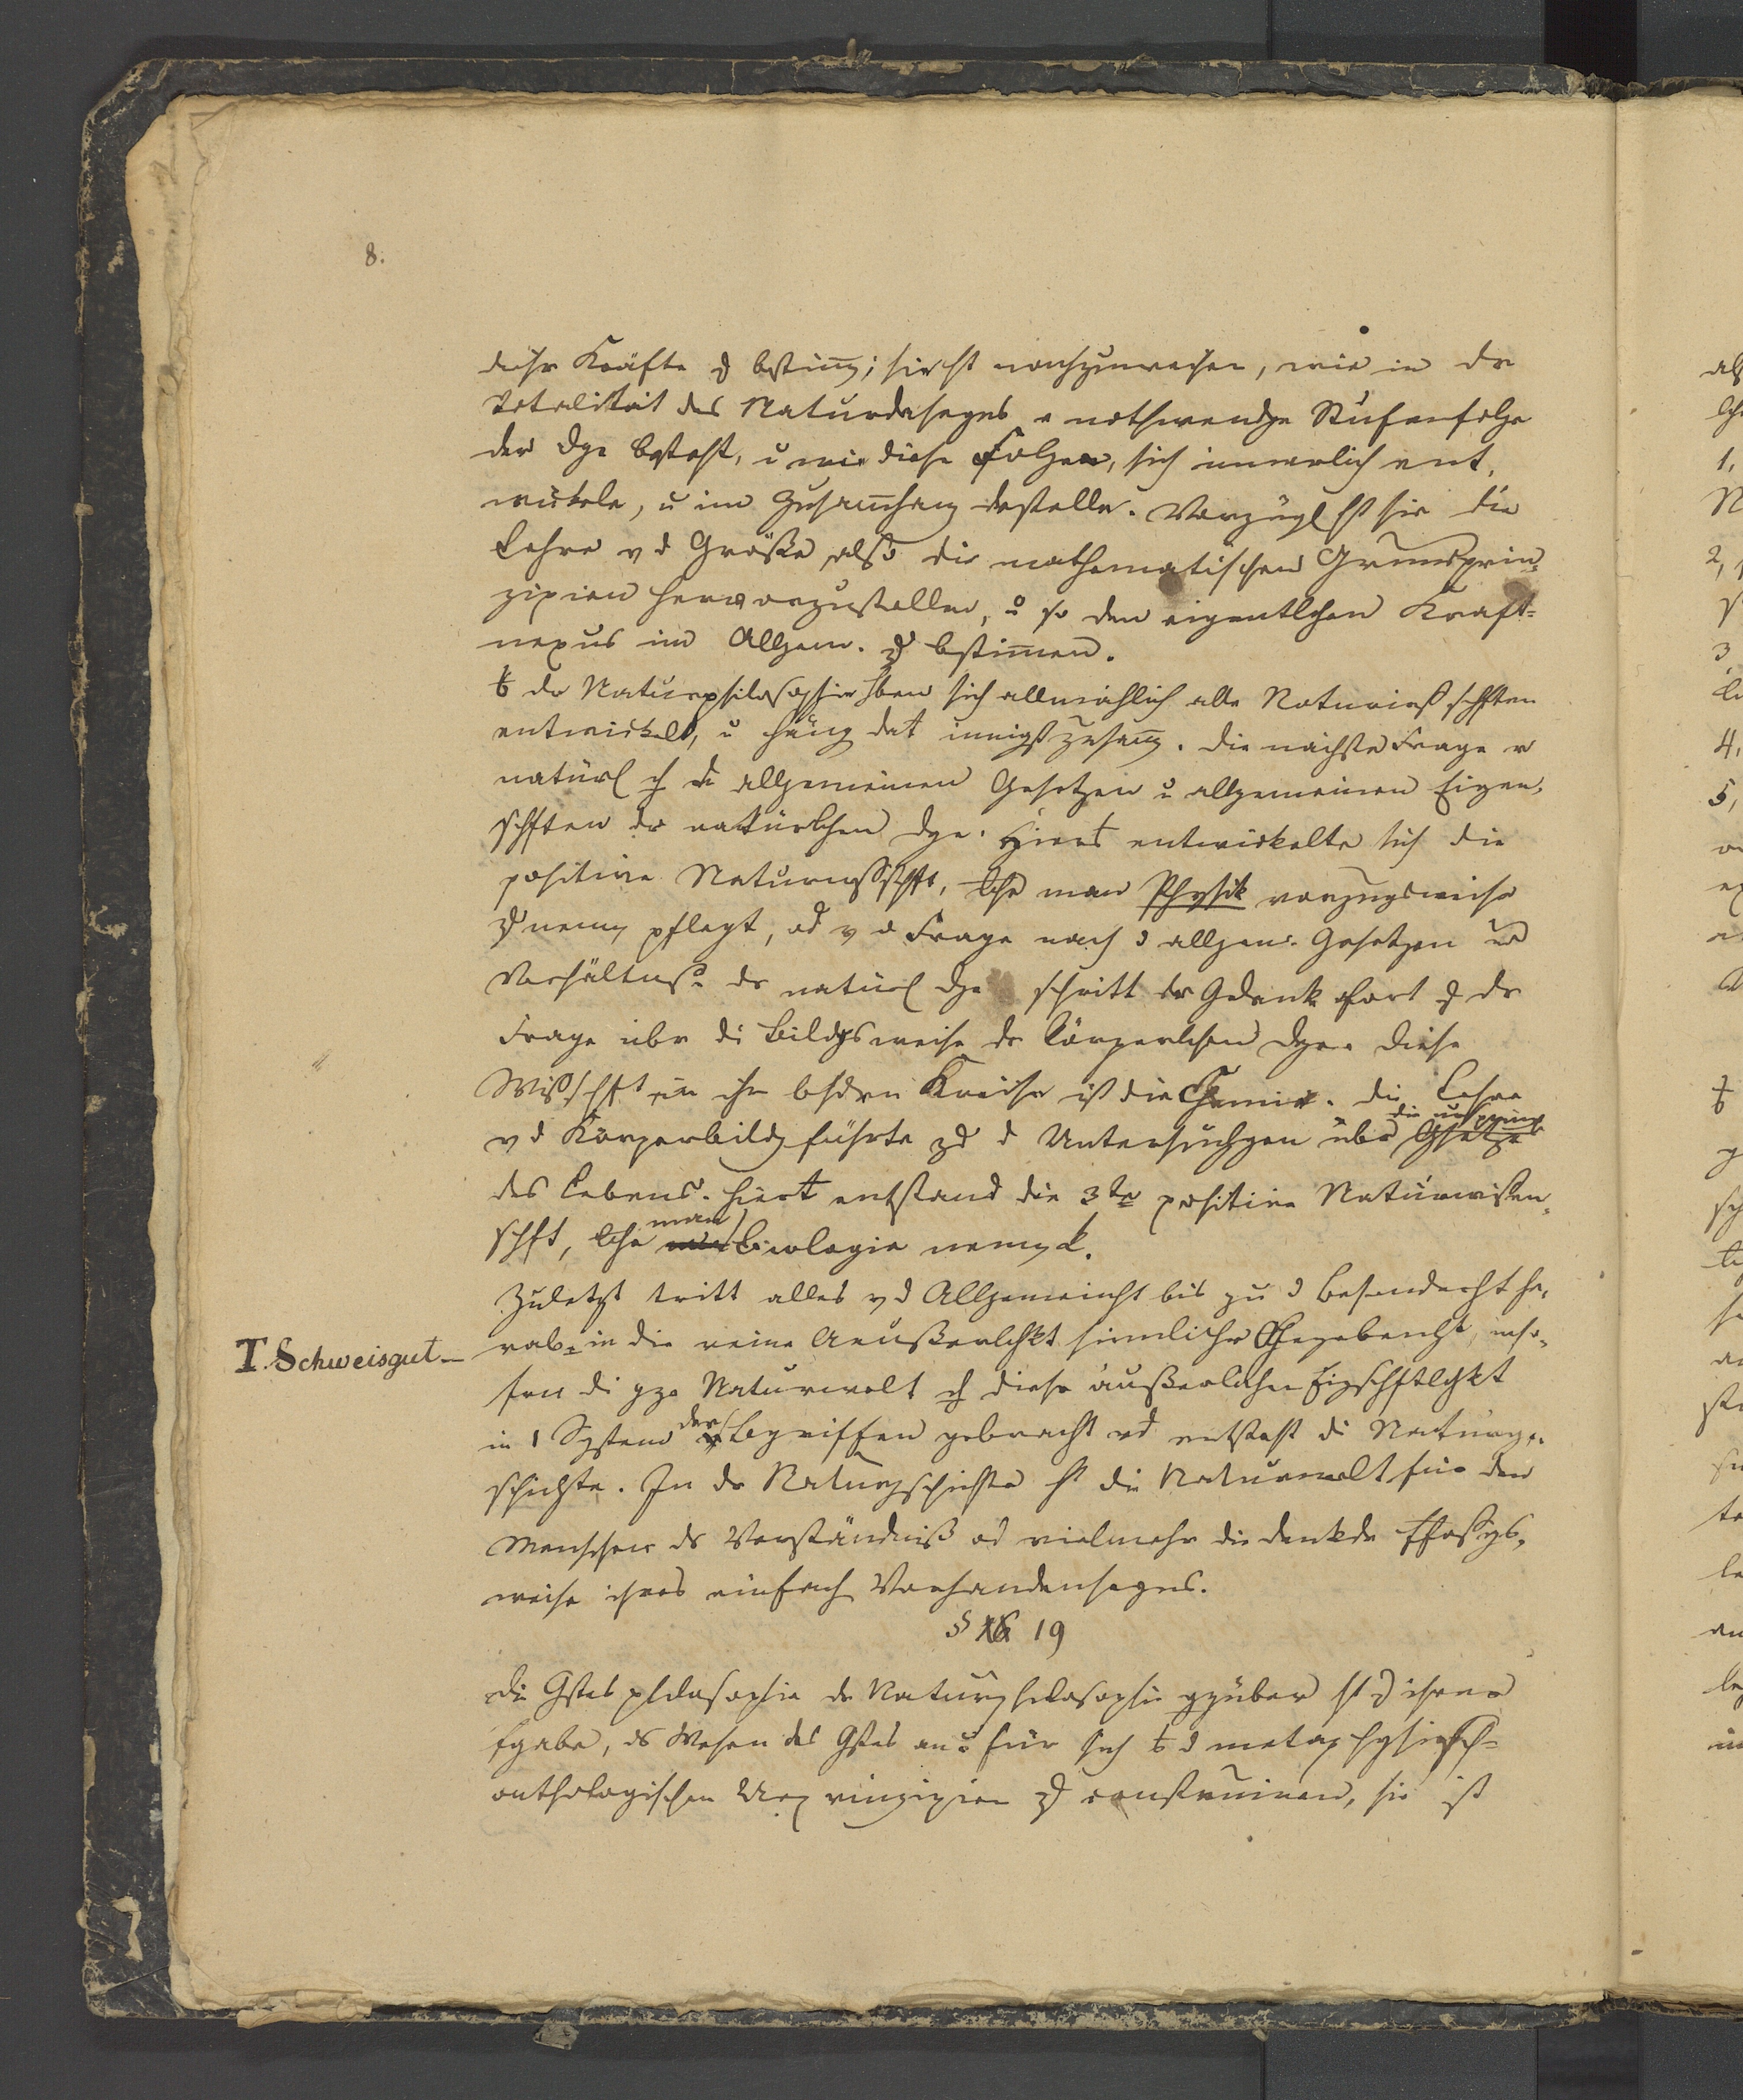 8.
dieser Kräfte z bestim̄; sie hat nachzuweisen, wie in der
Totalität des Naturdaseyns e nothwendge Stufenfolge
der Dge besteht, u wie diese Folgen, sich innerlich ent,
wickeln, u im Zusam̄hang darstellen. Vorzügl hat sie die
Lehre v d Größe, also die mathematischen Grundprin,
zipien hervorzustellen, u so den eigentlchen Kraft=
nexus im Allgem. z bestim̄en.
Aus dr Naturphilosophie hben sich allmählich alle Naturwißschften
entwickelt, u häng damit innigst zusam̄. Die nächste Frage w
natürl nach den allgemeinen Gesetzen u allgemeinen Eigen,
schften dr natürlchen Dge. Hieraus entwickelte sich die
positive Naturwissschft, welche man Physik vorzugsweise
z nenn pflegt, od v d Frage nach d allgem. Gesetzen u
Verhältnss dr natürl Dge schritt der Gedank fort z dr
Frage über di Bildgsweise dr körperlchen Dge. Diese
Wißschft in ihr besdren Kreise ist die Chemie. Die Lehre
v d Körperbildg führte z d Untersuchgen über die Gsetze
des Lebens. Hieraus entstand die 3te positive Naturwissen,
schft, lche man Biologie nennt.
Zuletzt tritt alles v d Allgemeinht bis zu d Besonderht he,
T. Schweisgut— rab, in die reine Aeußerlchkt sinnlicher Gegebenht, inso,
fern di gze Naturwelt nach dieser äußerlichen Eigschftlgkt
in 1 System der Begriffen gebracht wd entsteht di Naturge,
schichte. In dr Naturgschichte ist die Naturwelt für den
Menschen ds Verständniß od vielmehr die denkde Auffassgs,
weise ihres einfach Vorhandenseyns.
§ 19
Die Gstesphilosophie dr Naturphilosophie ggüber hat z ihrer
Aufgabe, ds Wesen des Gstes an u für sich aus d metaphysisch=
onthologischen Urprinzipien z construiren, sie ist